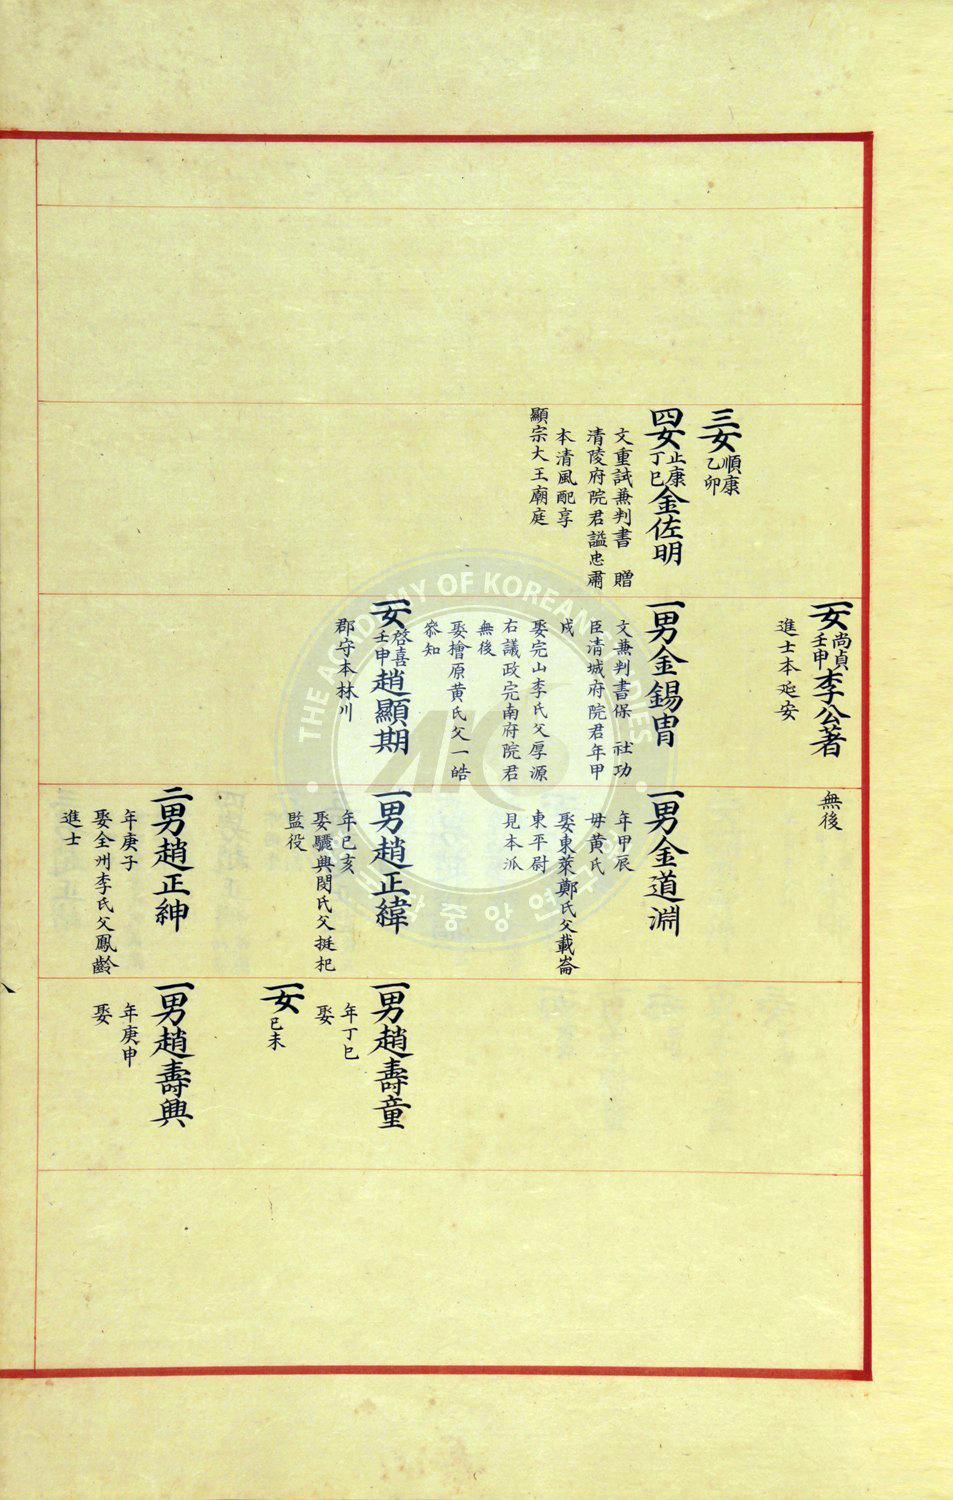 三女 順康 乙卯
四女 止康 丁巳 金佐明
文重試兼判書 贈
清陵府院君謚忠肅
本清風配享
顯宗大王廟庭
一女 尚貞 壬申 李公著
進士本延安
一男金錫冑
文兼判書保 社功
臣清城府院君年甲
戌
娶完山李氏父厚源
右議政完南府院君
無後
娶檜原黄氏父一皓
叅知
一女 啓喜 壬申 趙顯期
郡守本林川
無後
一男金道淵
年甲辰
毋黄氏
娶東萊鄭氏父載崙
東平尉
見本派
一男趙正緯
年己亥
娶驪興閔氏父挻杞
監役
二男趙正紳
年庚子
娶全州李氏父鳳齡
進士
一男趙壽童
年丁巳
娶
一女 己未
一男趙壽興
年庚申
娶
THE ACADEMY OF KOREAN STUDIES
AKS
한국학중앙연구원